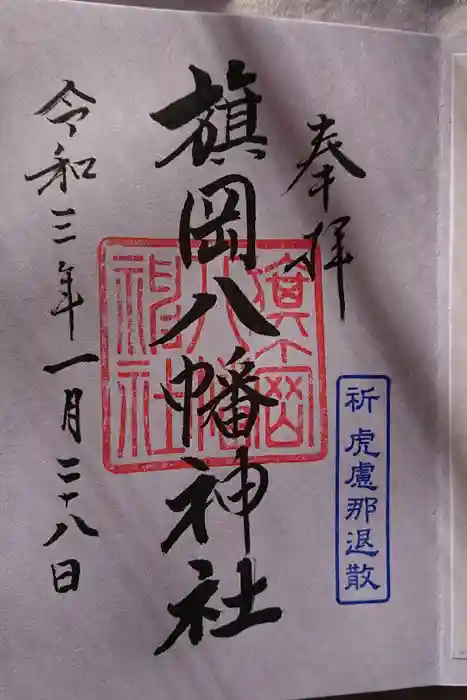 奉拝
祈 虎慮那退散
旗岡八幡神社
旗岡八幡神社
令和三年一月二十八日